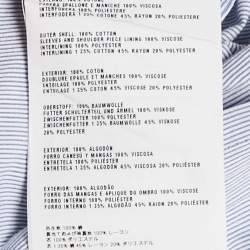 FODERA SPALLONE E MANICHE 100% VISCOSA
INTERFODERA 100% POLIESTERE
INTERFODERA 1 25% COTONE 45% VISCOSA 20% POLIESTERE
OUTER SHELL: 100% COTTON
SLEEVES AND SHOULDER PIECE LINING 100% VISCOSE
INTERLINING 100% POLYESTER
INTERLINING 1 25% COTTON 45% RAYON 20% POLYESTER
EXTERIOR: 100% COTON
DOUBLURE EPAULE ET MANCHES 100% VISCOSE
ENTOILAGE 100% POLYESTER
ENTOILAGE 1 25% COTON 45% RAYON 20% POLYESTER
OBERSTOFF: 100% BAUMWOLLE
FUTTER SCHULTERTEIL UND ÄRMEL 100% VISKOSE
ZWISCHENFUTTER 100% POLYESTER
ZWISCHENFUTTER 1 25% BAUMWOLLE 45% VISKOSE
20% POLYESTER
EXTERIOR: 100% ALGODÓN
FORRO CANESU Y MANGAS 100% VISCOSA
ENTRETELA 100% POLIÉSTER
ENTRETELA 1 25% ALGODÓN 45% RAYÓN 20% POLIÉSTER
EXTERIOR: 100% ALGODÃO
FORRO DAS MANGAS E APLIQUE DO OMBRO 100% VISCOSE
FORRO INTERNO 100% POLIÉSTER
FORRO INTERNO 1 25% ALGODÃO 45% RAION 20% POLIÉSTER
100% 綿
100% レーヨン
100% ポリエステル